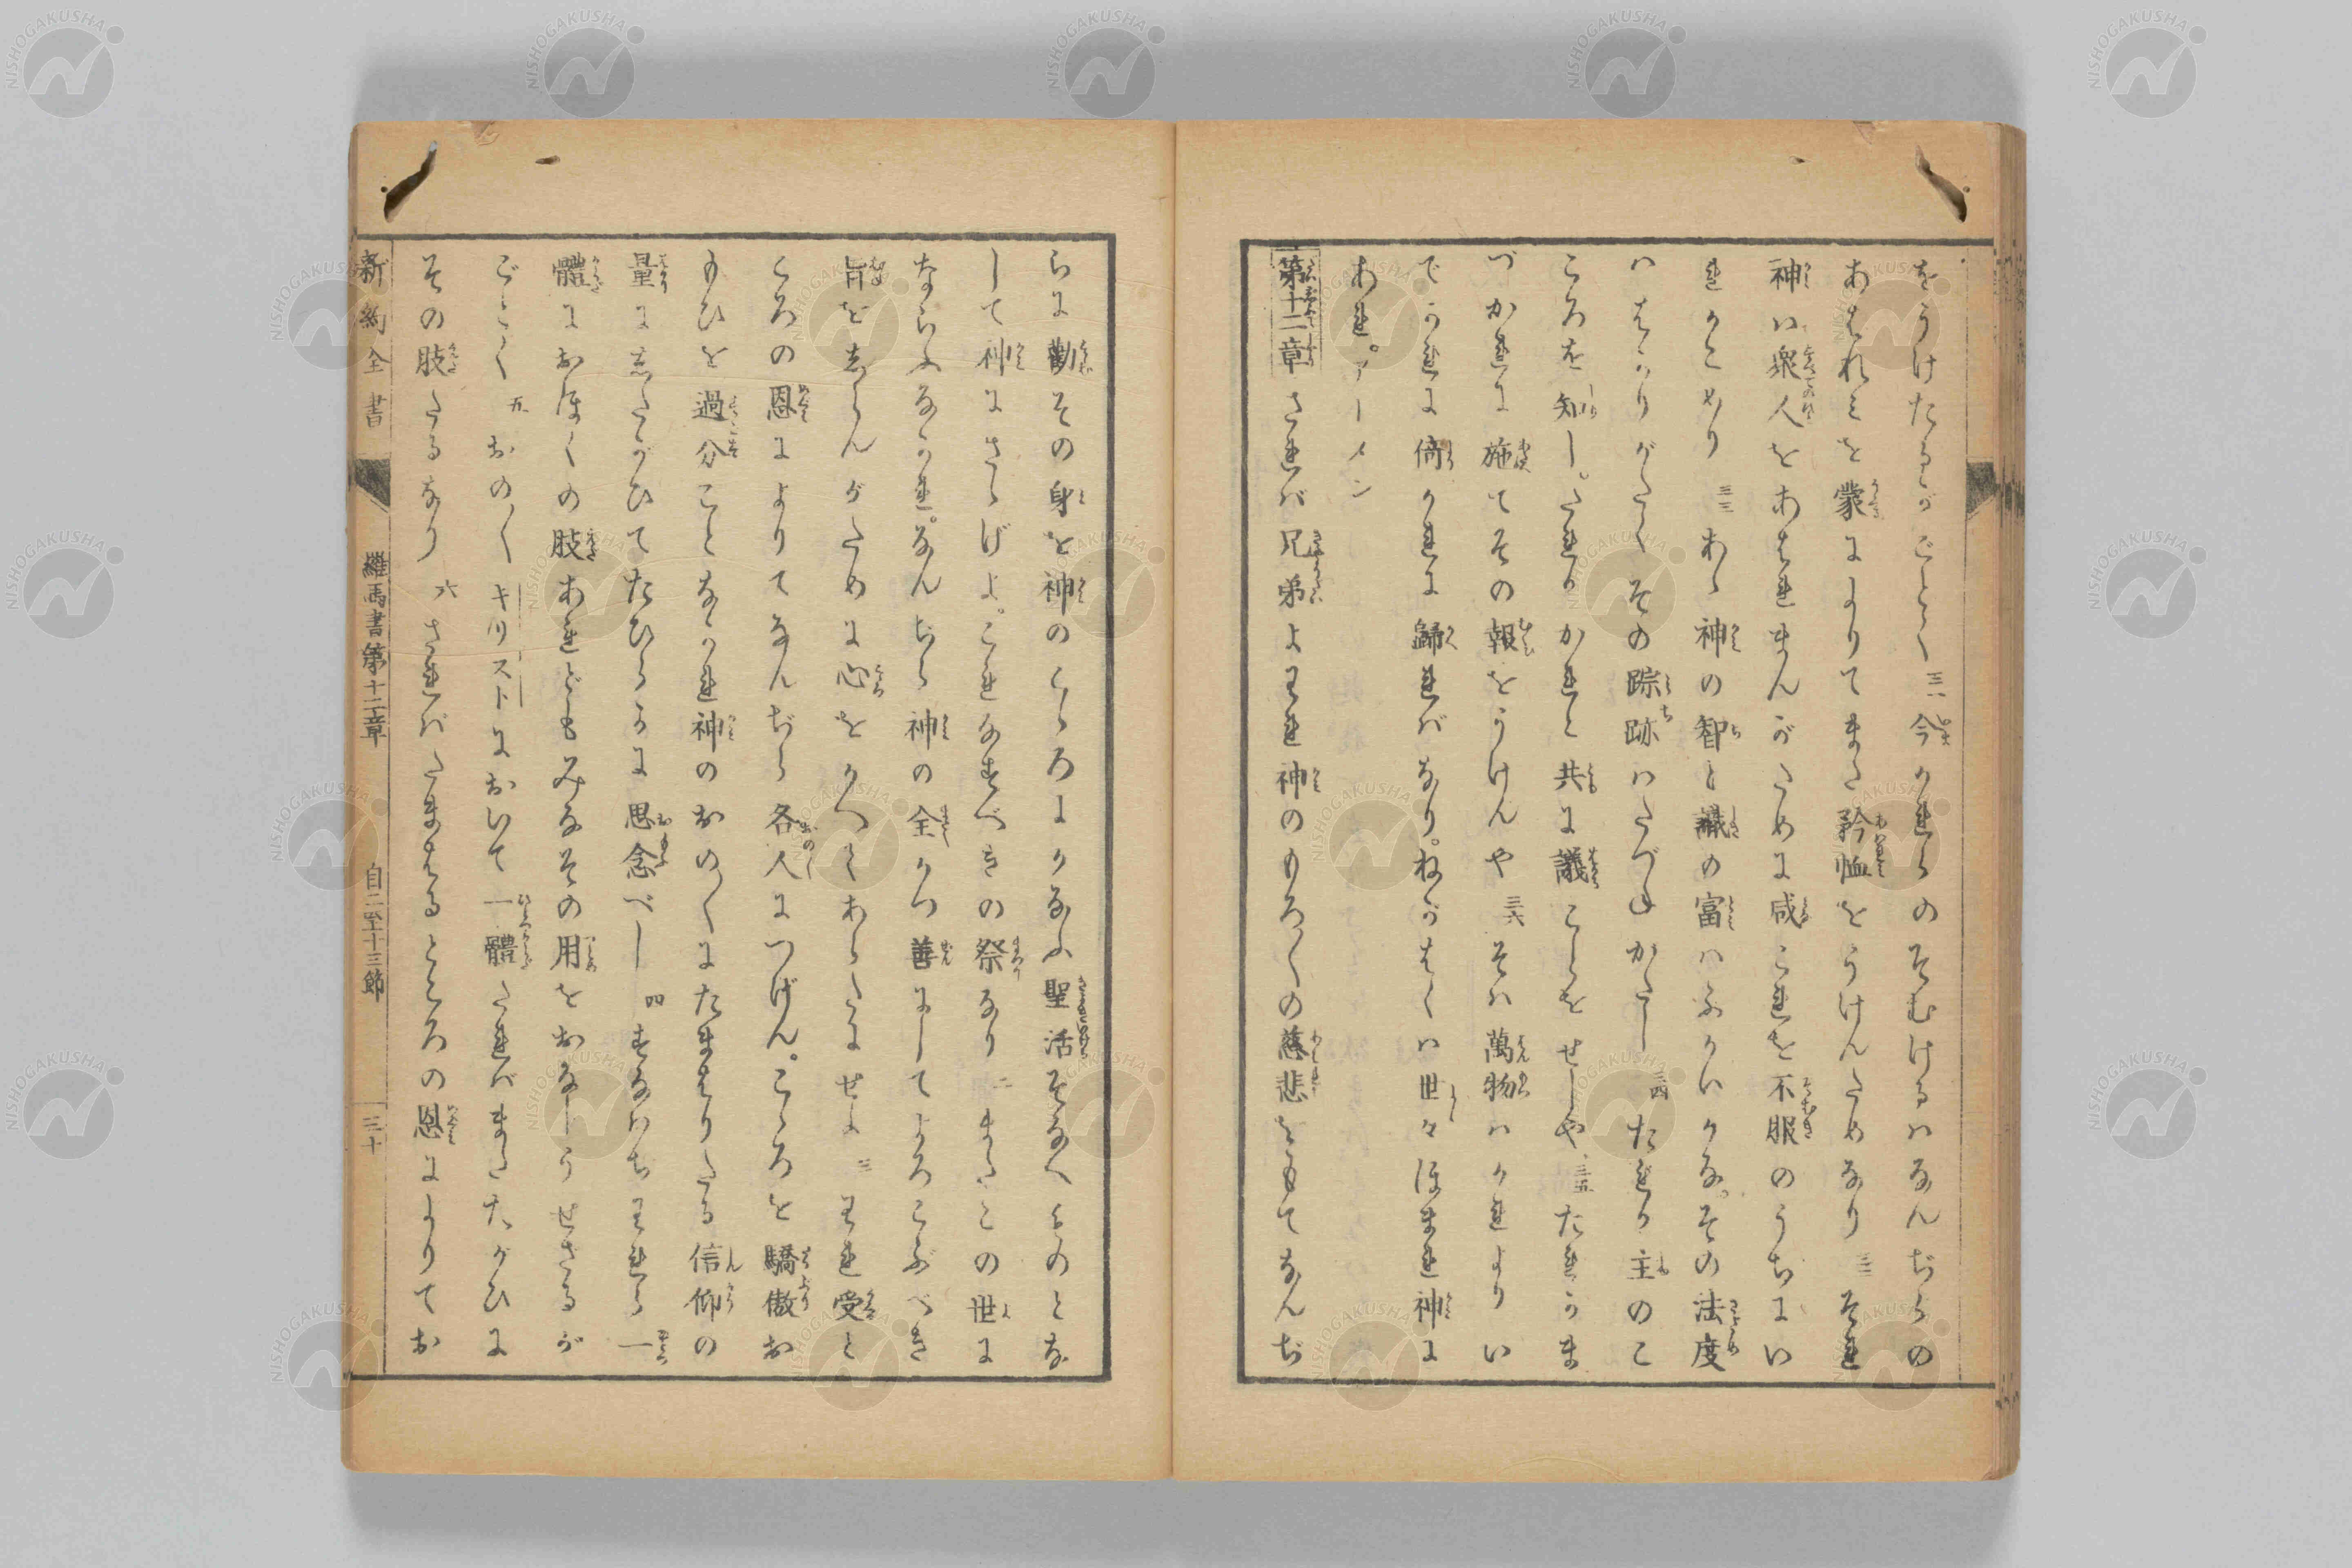 をうけたるがごとく 三一 今かれらのそむけるハなんぢらの
あはれミを蒙によりてまた矜恤をうけんためなり 三二 それ
神ハ衆人をあはれまんがために咸これを不服のうちにい
れかこめり 三三 あゝ神の智と識の富ハふかいかな。その法度
ハはかりがたくその踪跡ハたづねがたし 三四 たれか主のこ
ころを知し。たれかかれと共に議ことをせしや 三五 たれかま
づかれに施てその報をうけんや 三六 そハ萬物ハかれよりい
でかれに倚かれに歸ればなり。ねがはくハ世々ほまれ神に
あれ。アーメン
第十二章 されバ兄弟よわれ神のもろ〱の慈悲をもてなんぢ
らに勸その身を神のこゝろにかなふ聖活そなへものとな
して神にさゝげよ。これなすべきの祭なり 二 またこの世に
ならふなかれ。なんぢら神の全かつ善にしてよろこぶべき
旨をしらんがために心をかへてあらたにせよ 三 われ受と
ころの恩によりてなんぢら各人につげん。こゝろを驕傲お
もひを過分ことなかれ神のおの〱にたまはりたる信仰の
量にしたがひてたひらかに思念べし 四 すなハちわれら一
體におほくの肢あれどもみなその用をおなじうせざるが
ごとく 五 おの〱キリストにおいて一體たれバまたたがひに
その肢たるなり 六 されバたまはるところの恩によりてお
新約全書 羅馬書第十二章 自二至十三節 三十